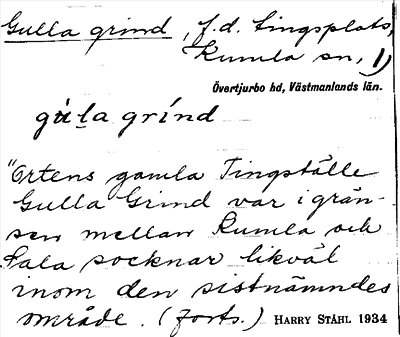 Gulla grind, f.d. tingsplats,
Kumla sn, 1)
Övertjurbo hd, Västmanlands län.
gùl̲a grínd
"Ortens gamla Tingställe
Gulla Grind var i grän-
sen mellan Kumla och
Sala socknar likväl
inom den sistnämndes
område. (forts.) HARRY STÅHL 1934